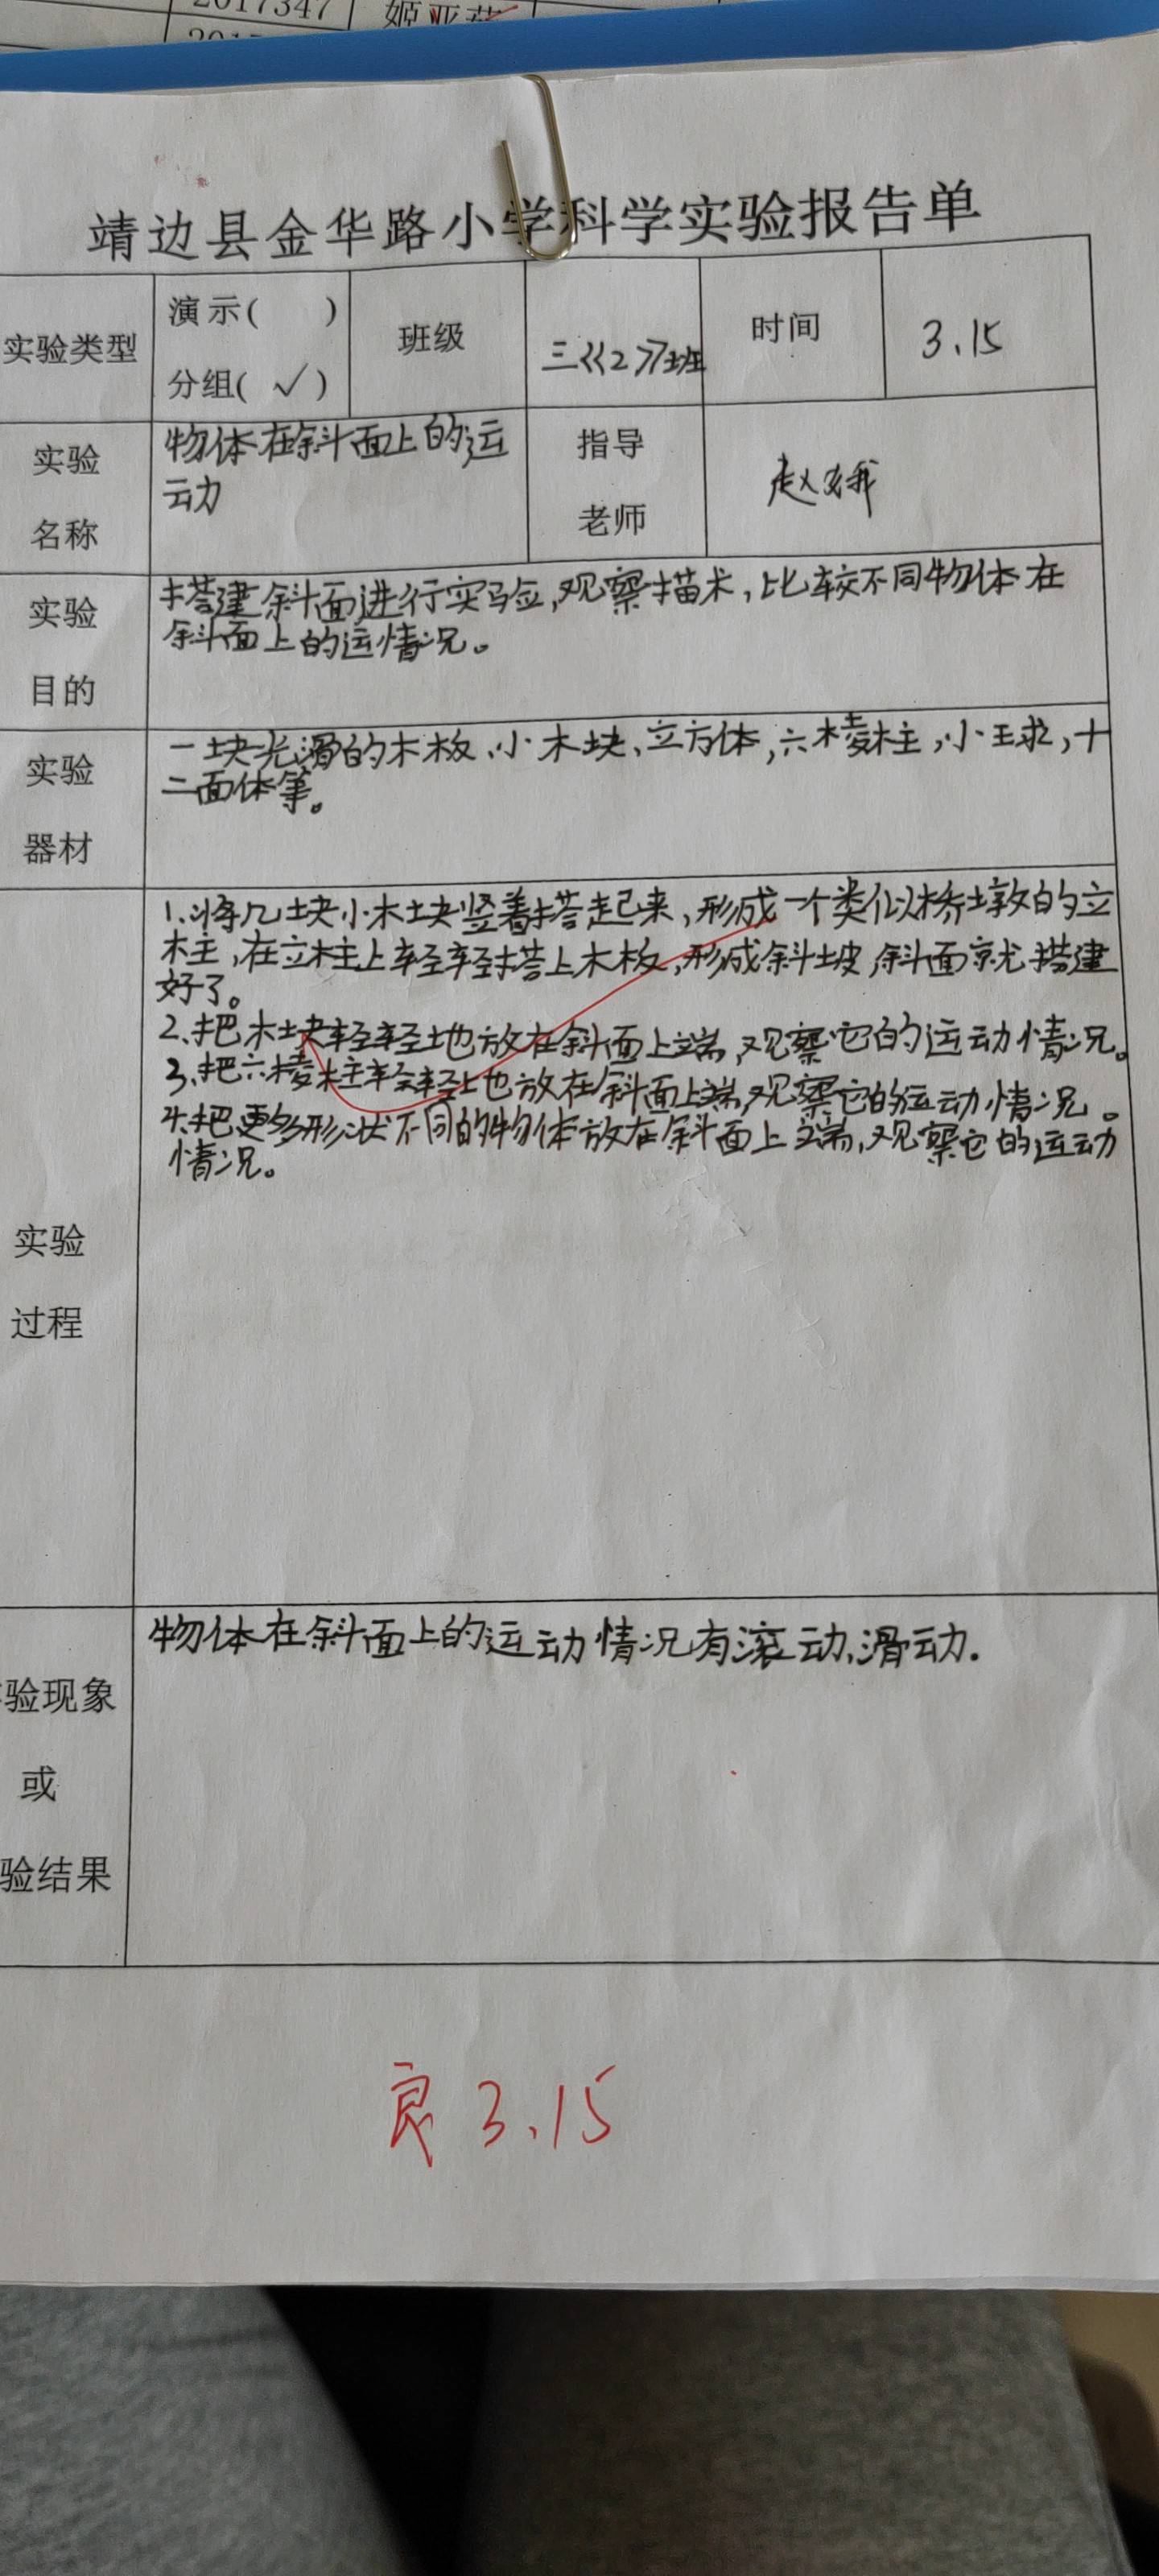 2017347 姬亚
靖边县金华路小学科学实验报告单
实验类型
演示( )
分组( ✓ )
班级
三《2》班
时间
3.15
实验
名称
物体在斜面上的运
动
指导
老师
赵娥
实验
目的
搭建斜面进行实验,观察描术,比较不同物体在
斜面上的运情况。
实验
器材
一块光滑的木板、小木块、立方体,六棱柱,小球,十
二面体等。
实验
过程
1、将几块小木块竖着搭起来,形成一个类似桥墩的立
柱,在立柱上轻轻搭上木板,形成斜坡,斜面就搭建
好了。
2、把木块轻轻地放在斜面上端,观察它的运动情况。
3、把六棱柱轻轻地放在斜面上端,观察它的运动情况。
4、把更多形状不同的物体放在斜面上端,观察它的运动
情况。
验现象
或
验结果
物体在斜面上的运动情况有滚动、滑动.
良 3.15